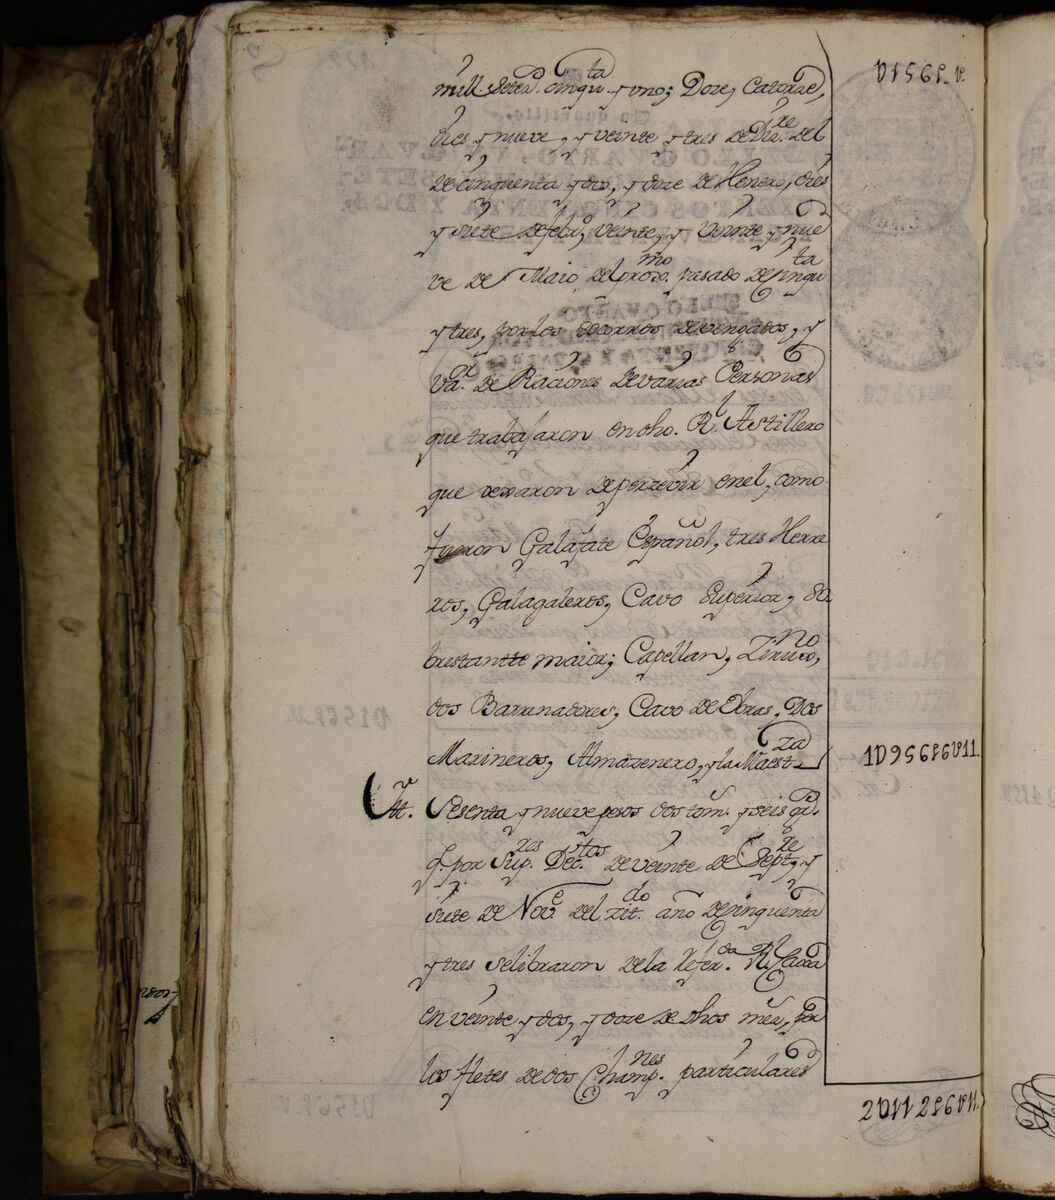 mill Seteuᵈ. cinquᵗᵃ. y uno; Doze, Catorze,
dies y nueve, y veinte y tres de Dizʳᵉ. del
de cinquenta y dos, y doze de Henero, dies
y siete de febrº, veinte, y veinte y nue
ve de Maio del proxᵐᵒ. pasado de cinquᵗᵃ
y tres, por los socorros devengados, y
Vaᵒʳ. de Raciones de varias Personas
que trabajaron en dho. Rˡ. Astillero
que dexaron de perzevir en el, como
fueron Galafate Español, tres Herre
ros, Galagaleros, Cavo Superior, So
brestantte maior; Capellan, Ziruxᵒ,
dos Barrenadores, Cavo de Obras, Dos
Marineros, Almazenero, y la Maestᶻᵃ
Itt. Sesenta y nueve pesos dos tom. y seis gˢ.
q. por Supʳᵉˢ. Decᵗᵒˢ. de veinte de Septʳᵉ, y
siete de Novᵉ del xitᵈᵒ. año de cinquenta
y tres se libraron de la Referᵈᵃ. Rˡ Caxa
en veinte y dos, y doze de dhos mes, por
los fletes de dos Champⁿᵉˢ. particulares